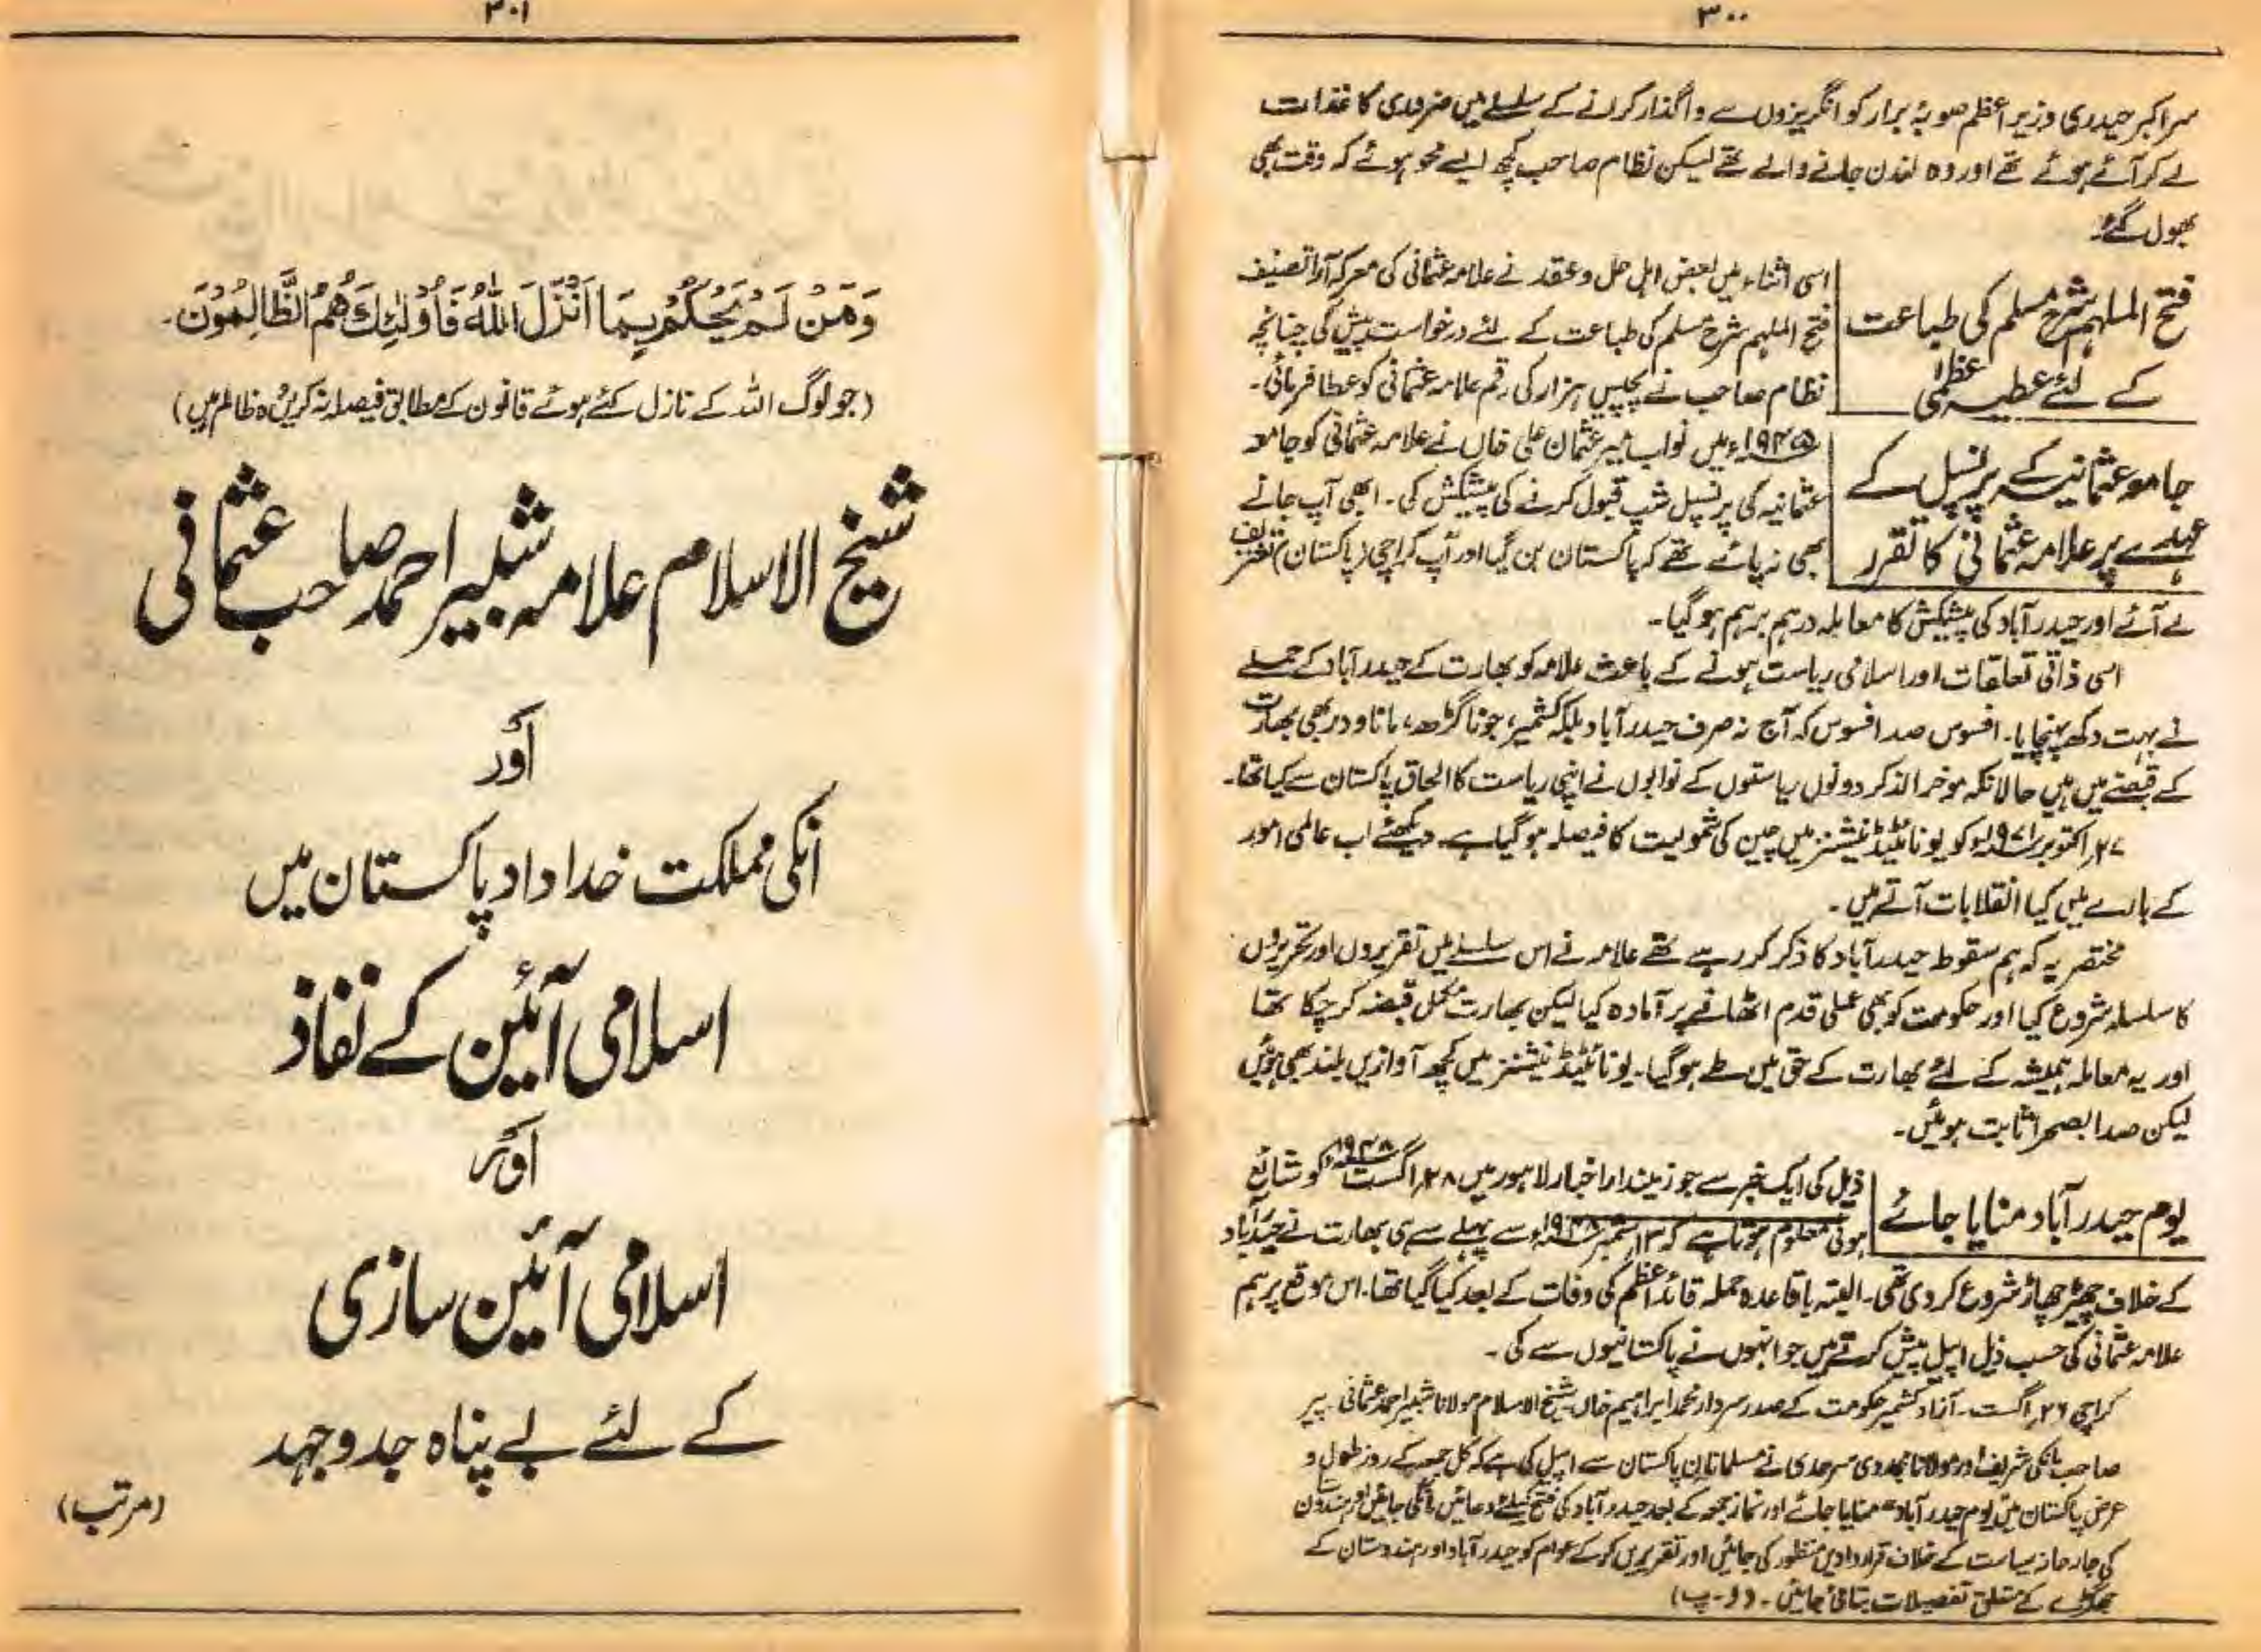 ۳۰۰
سر اکبر حیدری وزیر اعظم صوبۂ برار کو انگریزوں سے واگذار کرانے کے سلسلے میں ضروری کاغذات
لے کر آئے ہوئے تھے اور وہ لندن جانے والے تھے لیکن نظام صاحب کچھ ایسے محو ہوئے کہ وقت بھی
بھول گئے۔
فتح الملہم شرح مسلم کی طباعت
کے لئے عطیہ عظمیٰ
اسی اثناء میں بعض اہل حل و عقد نے علامہ عثمانی کی معرکہ آرا تصنیف
فتح الملہم شرح مسلم کی طباعت کے لئے درخواست پیش کی چنانچہ
نظام صاحب نے پچیس ہزار کی رقم علامہ عثمانی کو عطا فرمائی۔
جامعہ عثمانیہ کے پرنسپل کے
عہدے پر علامہ عثمانی کا تقرر
۱۹۴۵ء میں نواب میر عثمان علی خاں نے علامہ عثمانی کو جامعہ
عثمانیہ کی پرنسپل شپ قبول کرنے کی پیشکش کی۔ ابھی آپ جانے
بھی نہ پائے تھے کہ پاکستان بن گیا اور آپ کراچی (پاکستان) تشریف
لے آئے اور حیدر آباد کی پیشکش کا معاملہ درہم برہم ہو گیا۔
اسی ذاتی تعلقات اور اسلامی ریاست ہونے کے باعث علامہ کو بھارت کے حیدر آباد کے حملے
نے بہت دکھ پہنچایا۔ افسوس صد افسوس کہ آج نہ صرف حیدر آباد بلکہ کشمیر، جونا گڑھ، مانا ودر بھی بھارت
کے قبضے میں ہیں حالانکہ موخر الذکر دونوں ریاستوں کے نوابوں نے اپنی ریاست کا الحاق پاکستان سے کیا تھا۔
۲۷ اکتوبر ۱۹۷۱ء کو یونائیٹڈ نیشنز میں چین کی شمولیت کا فیصلہ ہو گیا ہے۔ دیکھئے اب عالمی امور
کے بارے میں کیا انقلابات آتے ہیں۔
مختصر یہ کہ ہم سقوط حیدر آباد کا ذکر کر رہے تھے علامہ نے اس سلسلے میں تقریروں اور تحریروں
کا سلسلہ شروع کیا اور حکومت کو بھی عملی قدم اٹھانے پر آمادہ کیا لیکن بھارت مکمل قبضہ کر چکا تھا
اور یہ معاملہ ہمیشہ کے لئے بھارت کے حق میں طے ہو گیا۔ یونائیٹڈ نیشنز میں کچھ آوازیں بلند بھی ہوئیں
لیکن صدا بصحرا ثابت ہوئیں۔
یوم حیدر آباد منایا جائے
ذیل کی ایک خبر سے جو زمیندار اخبار لاہور میں ۲۸ اگست ۱۹۴۸ء کو شائع
ہوئی معلوم ہوتا ہے کہ ۱۳ ستمبر ۱۹۴۸ء سے پہلے سے ہی بھارت نے حیدر آباد
کے خلاف چھیڑ چھاڑ شروع کر دی تھی۔ البتہ باقاعدہ حملہ قائد اعظم کی وفات کے بعد کیا گیا تھا۔ اس موقع پر ہم
علامہ عثمانی کی حسب ذیل اپیل پیش کرتے ہیں جو انہوں نے پاکستانیوں سے کی۔
کراچی ۲۶ اگست۔ آزاد کشمیر حکومت کے صدر سردار محمد ابراہیم خاں شیخ الاسلام مولانا شبیر احمد عثمانی۔ پیر
صاحب مانکی شریف اور مولانا مجددی سرحدی نے مسلمانان پاکستان سے اپیل کی ہے کہ کل جمعہ کے روز طول و
عرض پاکستان میں "یوم حیدر آباد" منایا جائے اور نماز جمعہ کے بعد حیدر آباد کی فتح کیلئے دعائیں مانگی جائیں اور ہندوستان
کی جارحانہ سیاست کے خلاف قراردادیں منظور کی جائیں اور تقریریں کر کے عوام کو حیدر آباد اور ہندوستان کے
جھگڑے کے متعلق تفصیلات بتائی جائیں۔ (ا۔ پ)
۳۰۱
وَمَنْ لَّمْ یَحْکُمْ بِمَا اَنْزَلَ اللّٰہُ فَاُولٰٓئِکَ ھُمُ الظّٰلِمُوْنَ۔
(جو لوگ اللہ کے نازل کئے ہوئے قانون کے مطابق فیصلہ نہ کریں وہ ظالم ہیں)
شیخ الاسلام علامہ شبیر احمد صاحب عثمانی
اور
انکی مملکت خداداد پاکستان میں
اسلامی آئین کے نفاذ
اور
اسلامی آئین سازی
کے لئے بے پناہ جدوجہد
(مرتب)